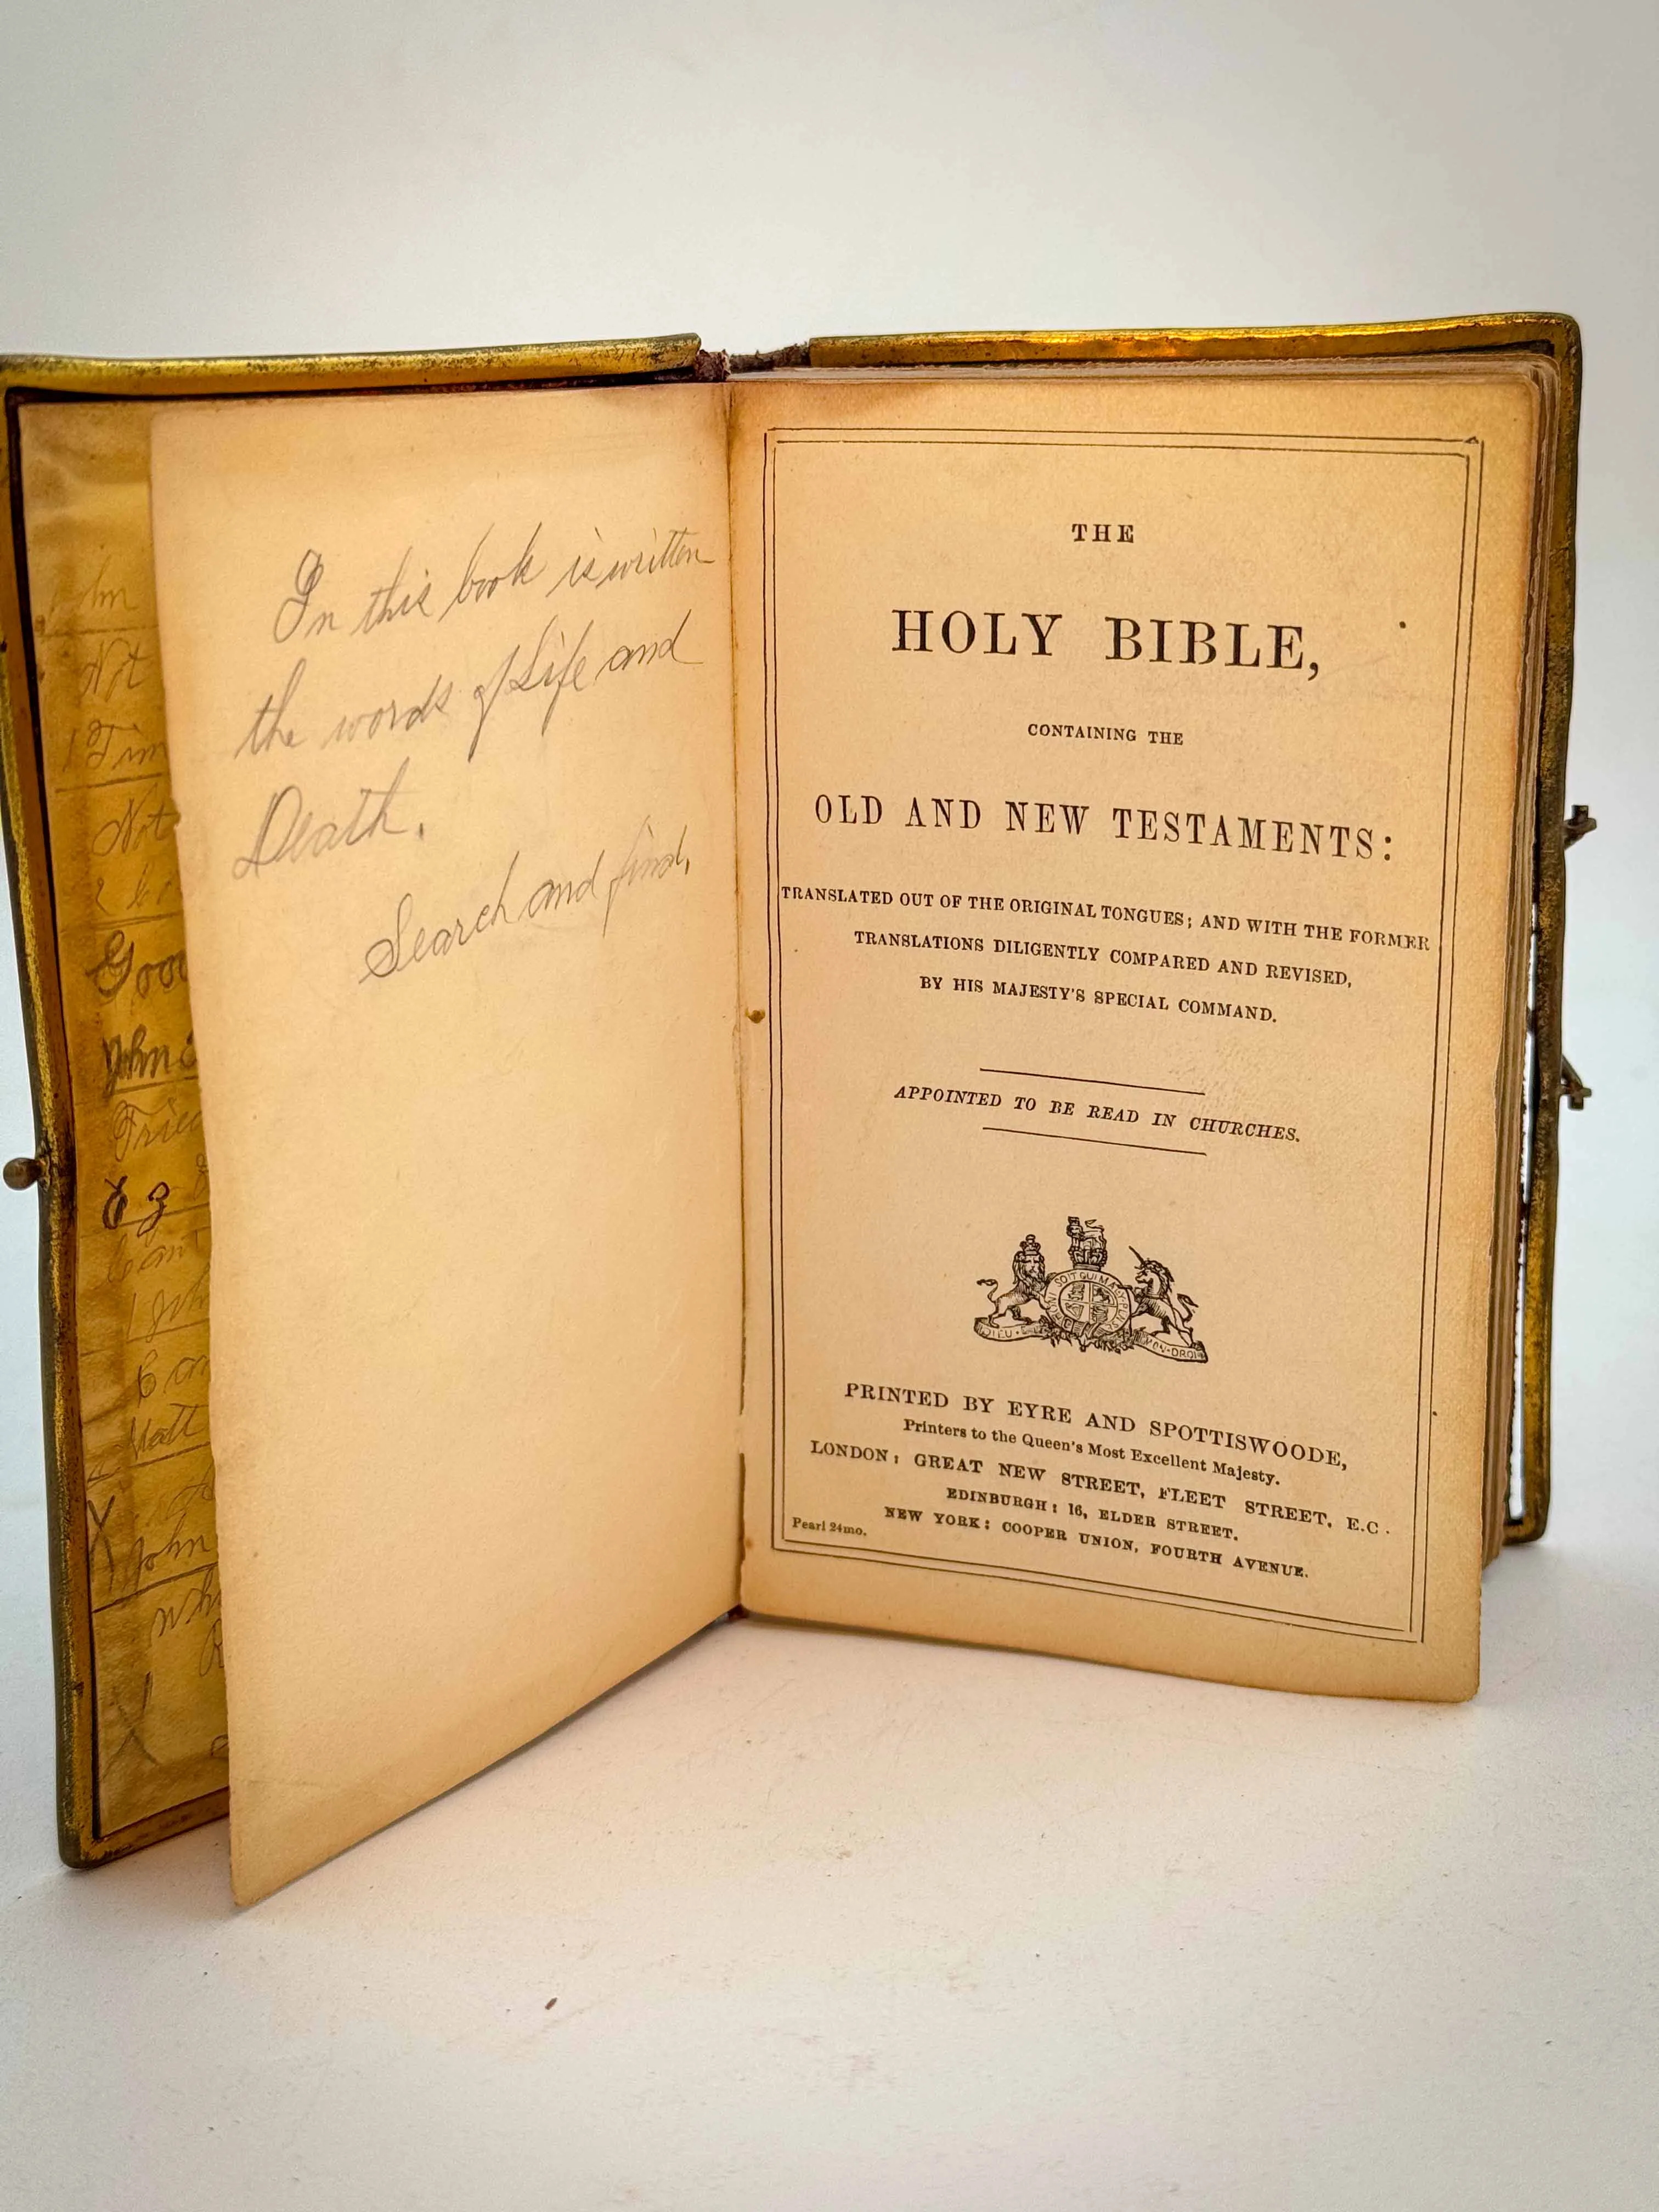 In this book is written
the words of Life and
Death.
Search and find.
Not
1 Tim
Not
John
Matt
John
THE
HOLY BIBLE,
CONTAINING THE
OLD AND NEW TESTAMENTS:
TRANSLATED OUT OF THE ORIGINAL TONGUES; AND WITH THE FORMER
TRANSLATIONS DILIGENTLY COMPARED AND REVISED,
BY HIS MAJESTY'S SPECIAL COMMAND.
APPOINTED TO BE READ IN CHURCHES.
PRINTED BY EYRE AND SPOTTISWOODE,
Printers to the Queen's Most Excellent Majesty.
LONDON: GREAT NEW STREET, FLEET STREET, E.C.
EDINBURGH: 16, ELDER STREET.
NEW YORK: COOPER UNION, FOURTH AVENUE.
Pearl 24mo.